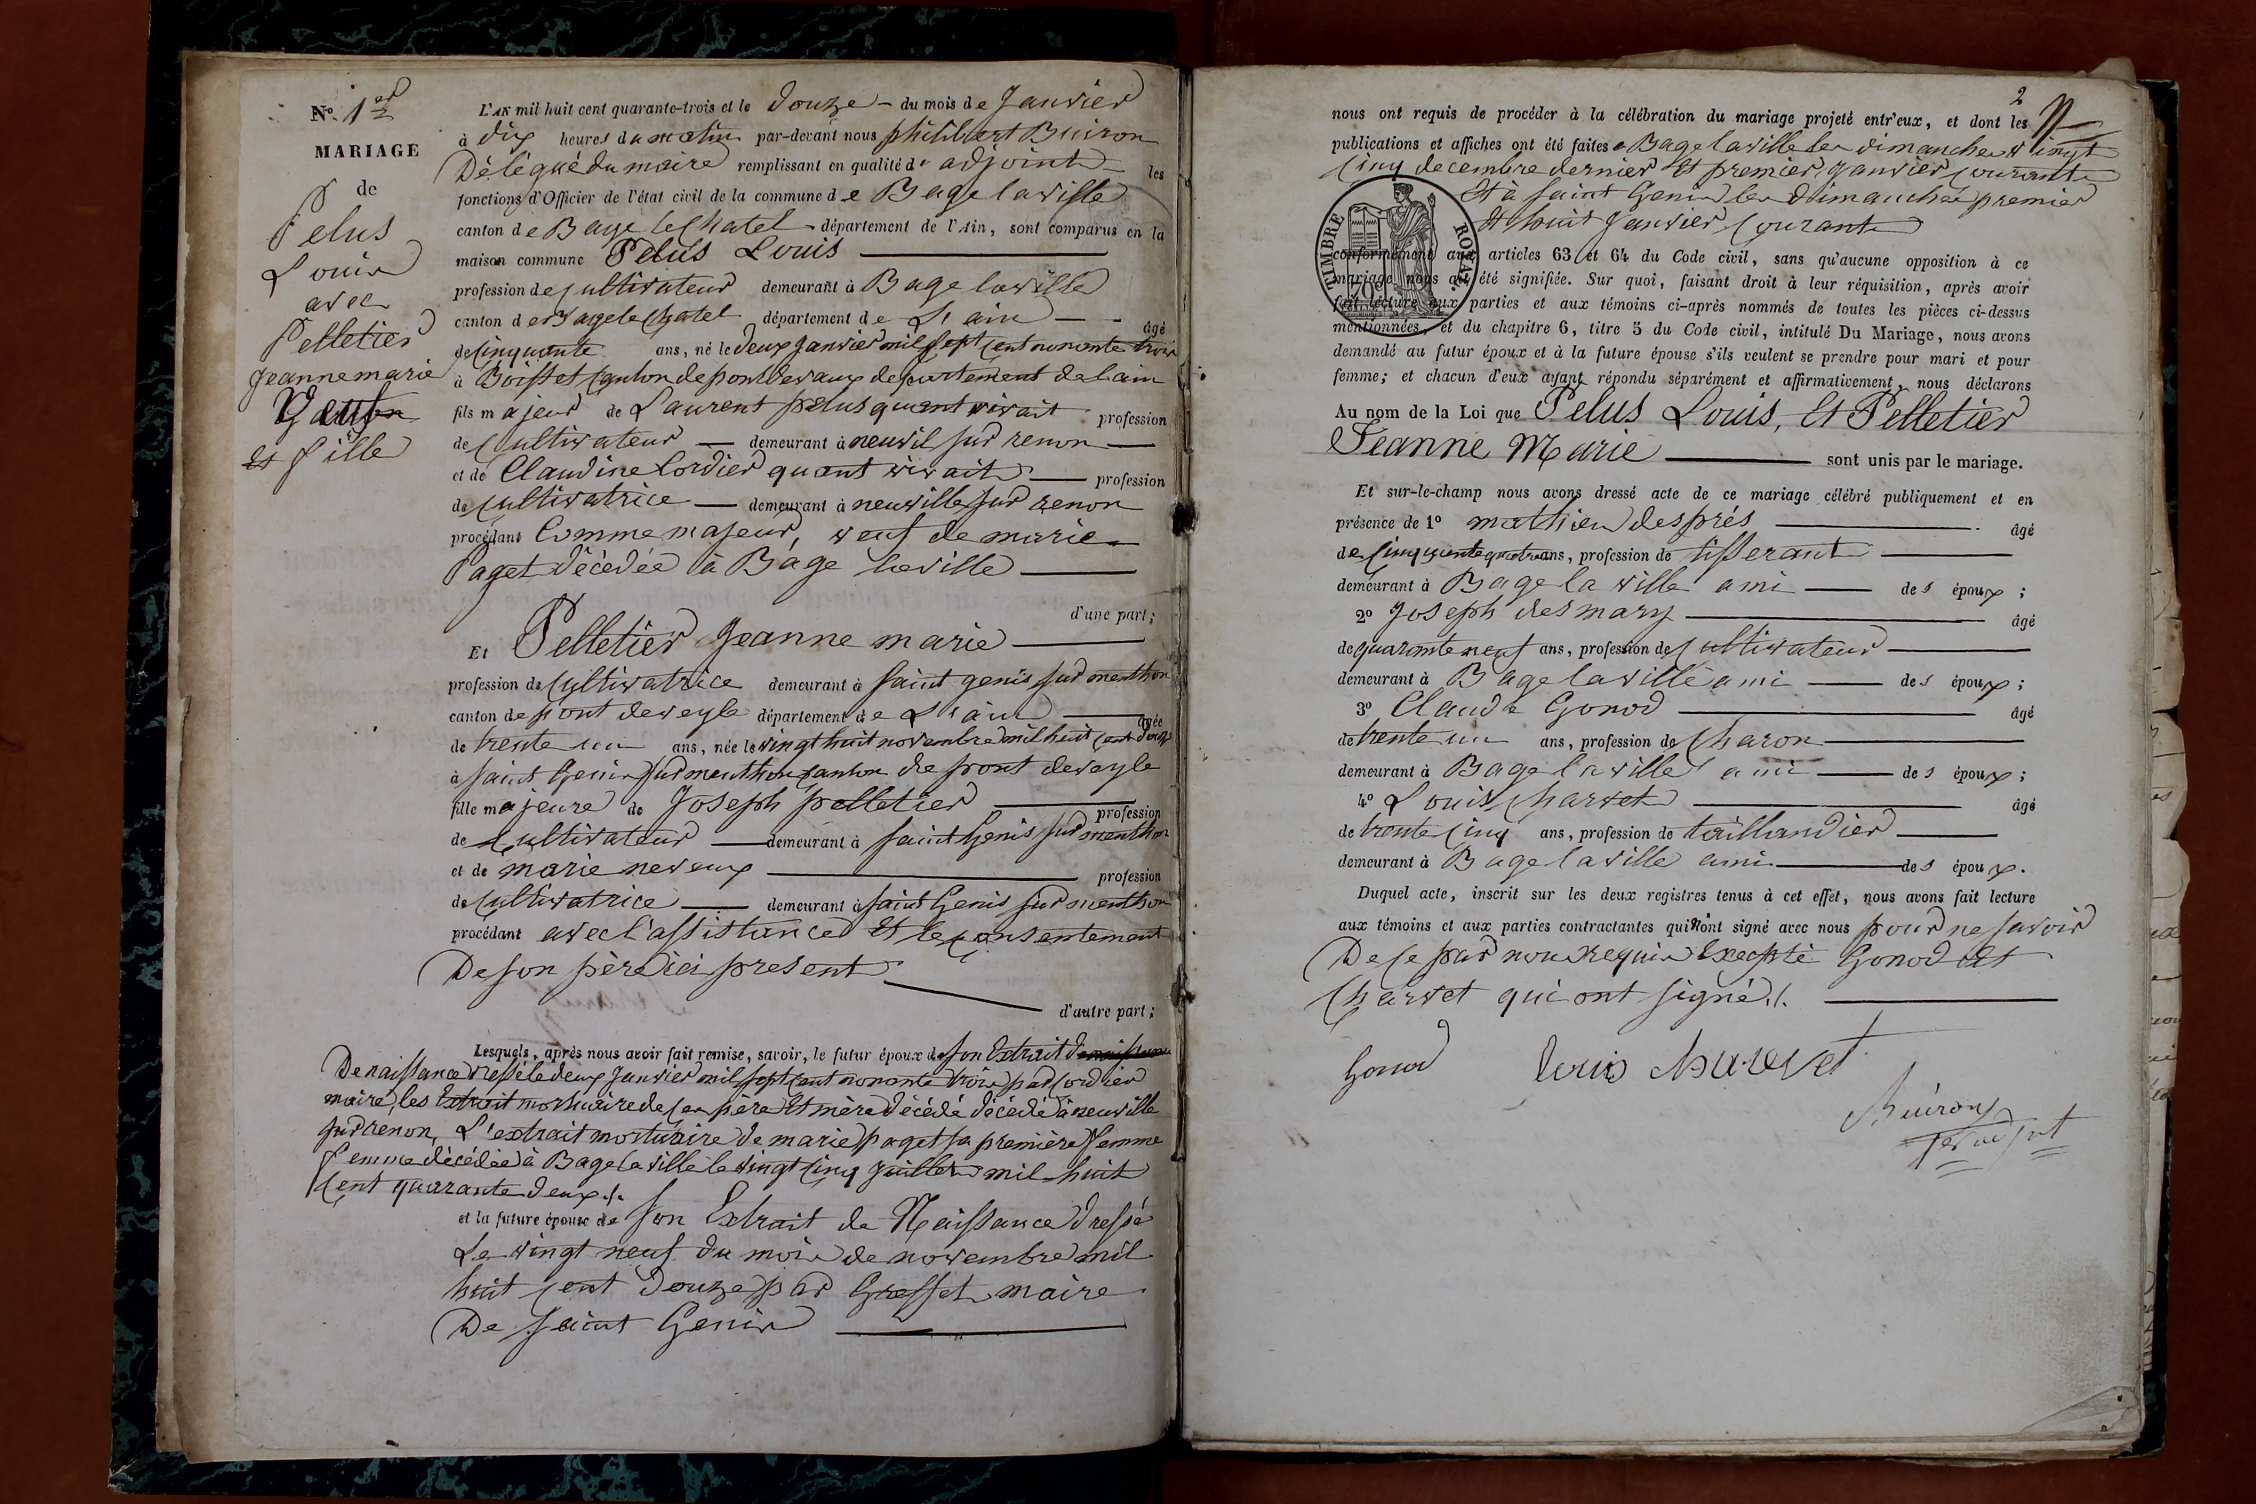 N° 1er
MARIAGE
de
Pelus
Louis
avec
Pelletier
Jeanne marie
Veuf
et fille
L'AN mil huit cent quarante-trois et le douze - du mois de Janvier
à dix heures du matin par-devant nous philibert Buiron
Délégué du maire remplissant en qualité d' adjoint les
fonctions d'Officier de l'état civil de la commune de Bage la ville
canton de Bage le Chatel - département de l'Ain, sont comparus en la
maison commune Pelus Louis
profession de Cultivateur demeurant à Bage la ville
canton de Bage le Chatel département de L'ain - - âgé
de Cinquante ans, né le deux Janvier mil sept cent nonante trois
à Boisset Canton de pont de vaux département de l'ain
fils majeur de Laurent pelus quant vivait profession
de Cultivateur — demeurant à neuvil sur renon
et de Claudine Cordier quant vivait profession
de Cultivatrice — demeurant à neuville sur renon
procédant Comme majeur, veuf de marie
Paget décédée à Bage la ville
d'une part;
Et Pelletier Jeanne marie
profession de Cultivatrice demeurant à saint genis sur menthon
canton de pont de veyle département de L'ain âgée
de trente un ans, née le vingt huit novembre mil huit cent douze
à saint Genis sur menthon Canton de pont de veyle
fille majeure de Joseph pelletier profession
de Cultivateur — demeurant à saint Genis sur menthon
et de marie neveux profession
de Cultivatrice — demeurant à saint Genis sur menthon
procédant avec l'assistance Et le Consentement
De son père ici present
d'autre part;
Lesquels, après nous avoir fait remise, savoir, le futur époux de son Extrait de naissance
De naissance dressé le deux Janvier mil sept cent nonante trois par Cordier
maire, les Extrait mortuaire de ses père Et mère décédé décédé à neuville
sur renon, L'extrait mortuaire de marie paget sa première femme
femme décédée à Bage la ville le vingt Cinq Juillet mil huit
Cent quarante deux ./.
et la future épouse de son Extrait de Naissance dressé
Le vingt neuf du mois de novembre mil
huit Cent douze par Gresset maire
De saint Genis
2
nous ont requis de procéder à la célébration du mariage projeté entr'eux, et dont les
publications et affiches ont été faites a Bage la ville les dimanches vingt
Cinq decembre dernier Et premier Janvier Courant
Et à saint Genis les dimanches premier
Et huit Janvier Courant
TIMBRE ROYAL
conformément aux articles 63 et 64 du Code civil, sans qu'aucune opposition à ce
mariage nous ait été signifiée. Sur quoi, faisant droit à leur réquisition, après avoir
fait lecture aux parties et aux témoins ci-après nommés de toutes les pièces ci-dessus
mentionnées, et du chapitre 6, titre 5 du Code civil, intitulé Du Mariage, nous avons
demandé au futur époux et à la future épouse s'ils veulent se prendre pour mari et pour
femme; et chacun d'eux ayant répondu séparément et affirmativement, nous déclarons
Au nom de la Loi que Pelus Louis, Et Pelletier
Jeanne Marie sont unis par le mariage.
Et sur-le-champ nous avons dressé acte de ce mariage célébré publiquement et en
présence de 1° mathieu després âgé
de Cinquante quatre ans, profession de tisserant
demeurant à Bage la ville ami des époux;
2° Joseph desmary âgé
de quarante neuf ans, profession de Cultivateur
demeurant à Bage la ville ami des époux;
3° Claude Gonod âgé
de trente un ans, profession de Charon
demeurant à Bage la ville ami des époux;
4° Louis Charvet âgé
de trente Cinq ans, profession de taillandier
demeurant à Bage la ville ami des époux.
Duquel acte, inscrit sur les deux registres tenus à cet effet, nous avons fait lecture
aux témoins et aux parties contractantes qui n'ont signé avec nous pour ne savoir
De ce par nous requis Excepté Gonod Et
Charvet qui ont signé ./.
Gonod Louis Charvet
Buiron